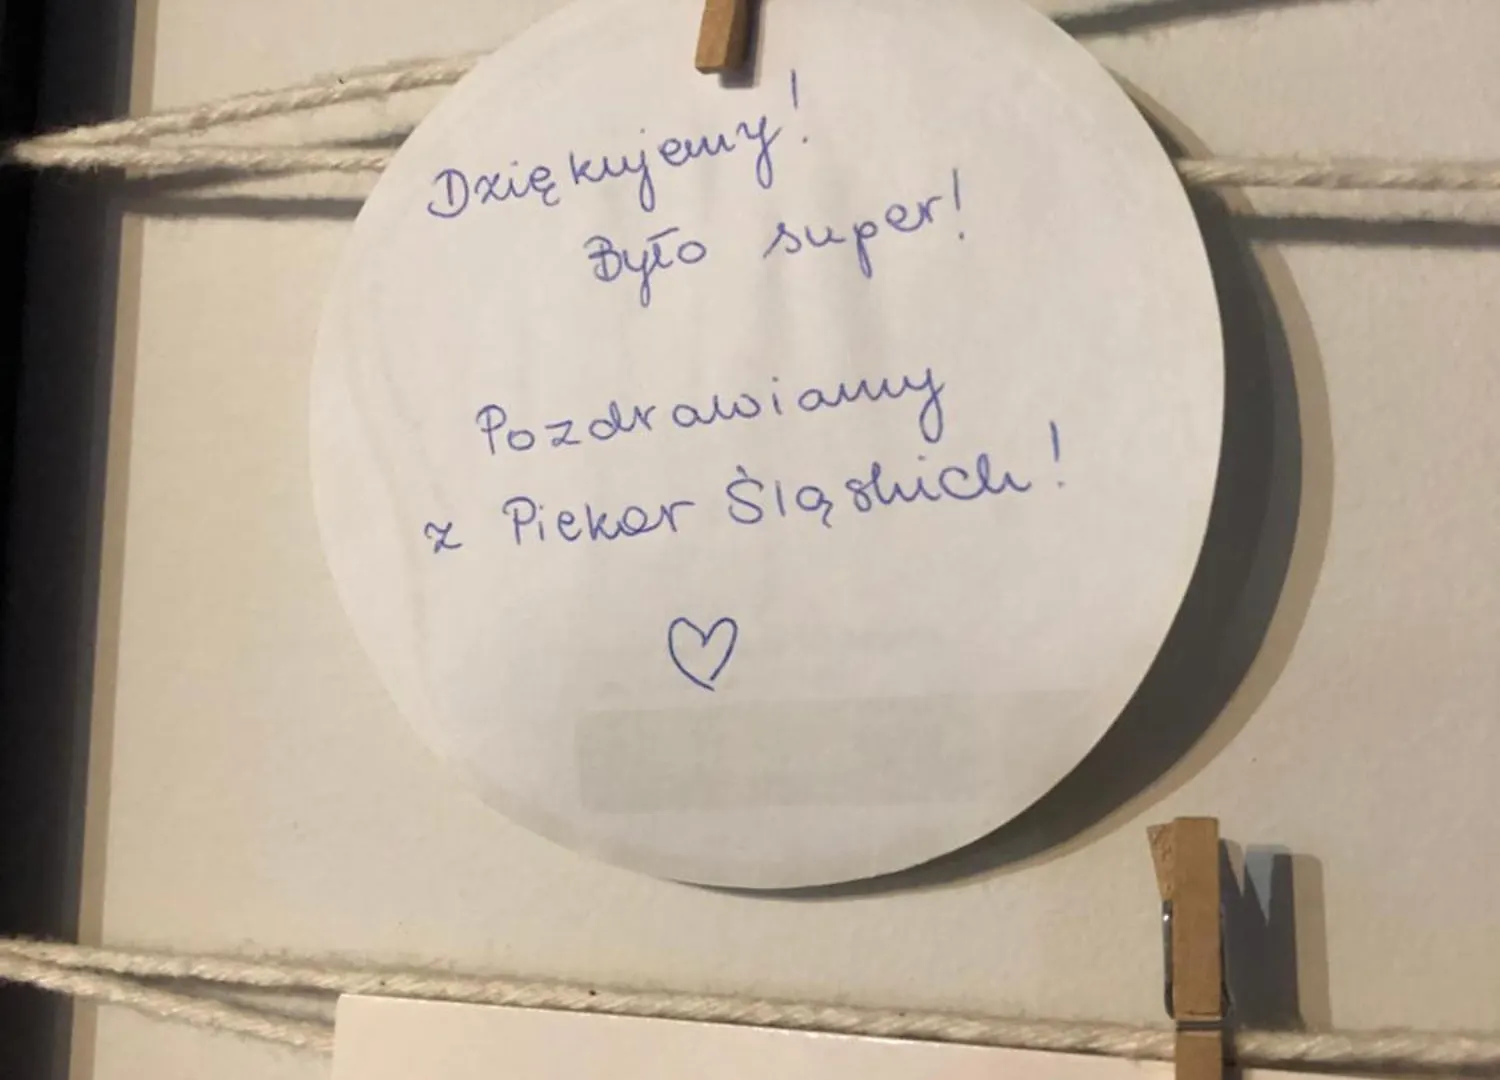 Dziękujemy!
Było super!
Pozdrawiamy
z Piekar Śląskich!